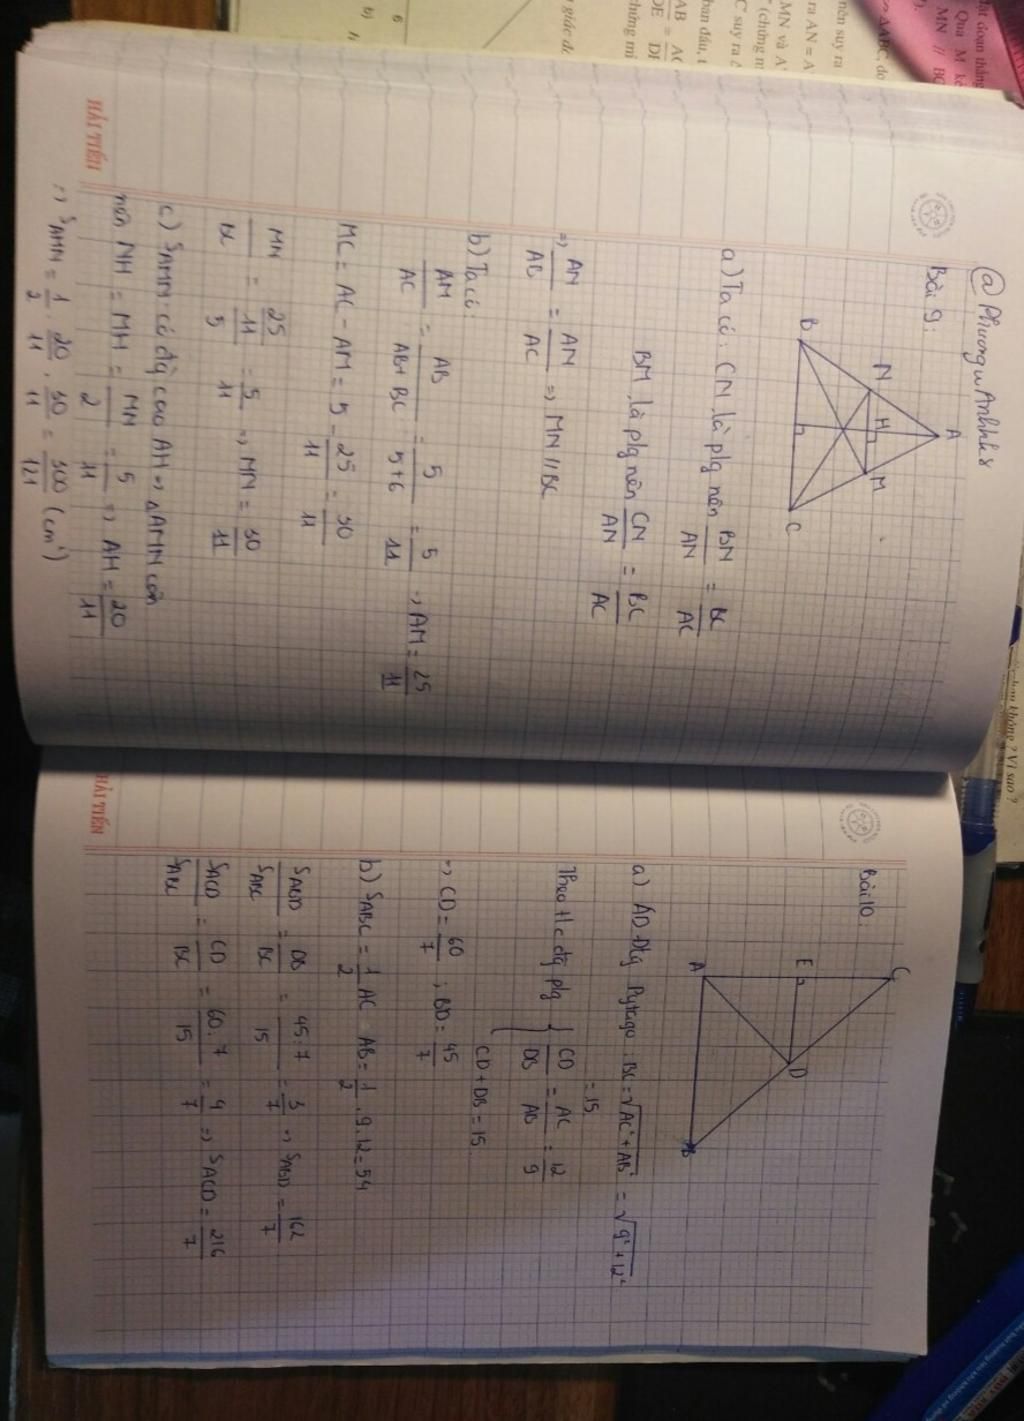 @Phương Anhhks
Bài 9:
A
N
H
M
B
C
a) Ta có: CN là plg nên BN/AN = BC/AC
BM là plg nên CN/AN = BC/AC
=> AN/AB = AM/AC => MN // BC
b) Ta có:
AM/AC = AB/AB+BC = 5/5+6 = 5/11 => AM = 25/11
MC = AC - AM = 5 - 25/11 = 30/11
MN/BC = 25/11/5 = 5/11 => MN = 30/11
c) SAMN: có đg cao AH => ΔAMN cân
nên NH = MH = MN/2 = 5/11 => AH = 20/11
=> SAMN = 1/2 . 20/11 . 30/11 = 300/121 (cm²)
HẢI TIẾN
Bài 10:
C
E
D
A
B
a) AD Đlg Pytago: BC = √AC² + AB² = √9² + 12²
= 15
Theo t/c đg plg { CD/DB = AC/AB = 12/9
CD + DB = 15
=> CD = 60/7 ; BD = 45/7
b) SABC = 1/2 AC . AB = 1/2 . 9.12 = 54
SABD/SABC = DB/BC = 45:7/15 = 3/7 => SABD = 162/7
SACD/SABC = CD/BC = 60:7/15 = 4/7 => SACD = 216/7
HẢI TIẾN